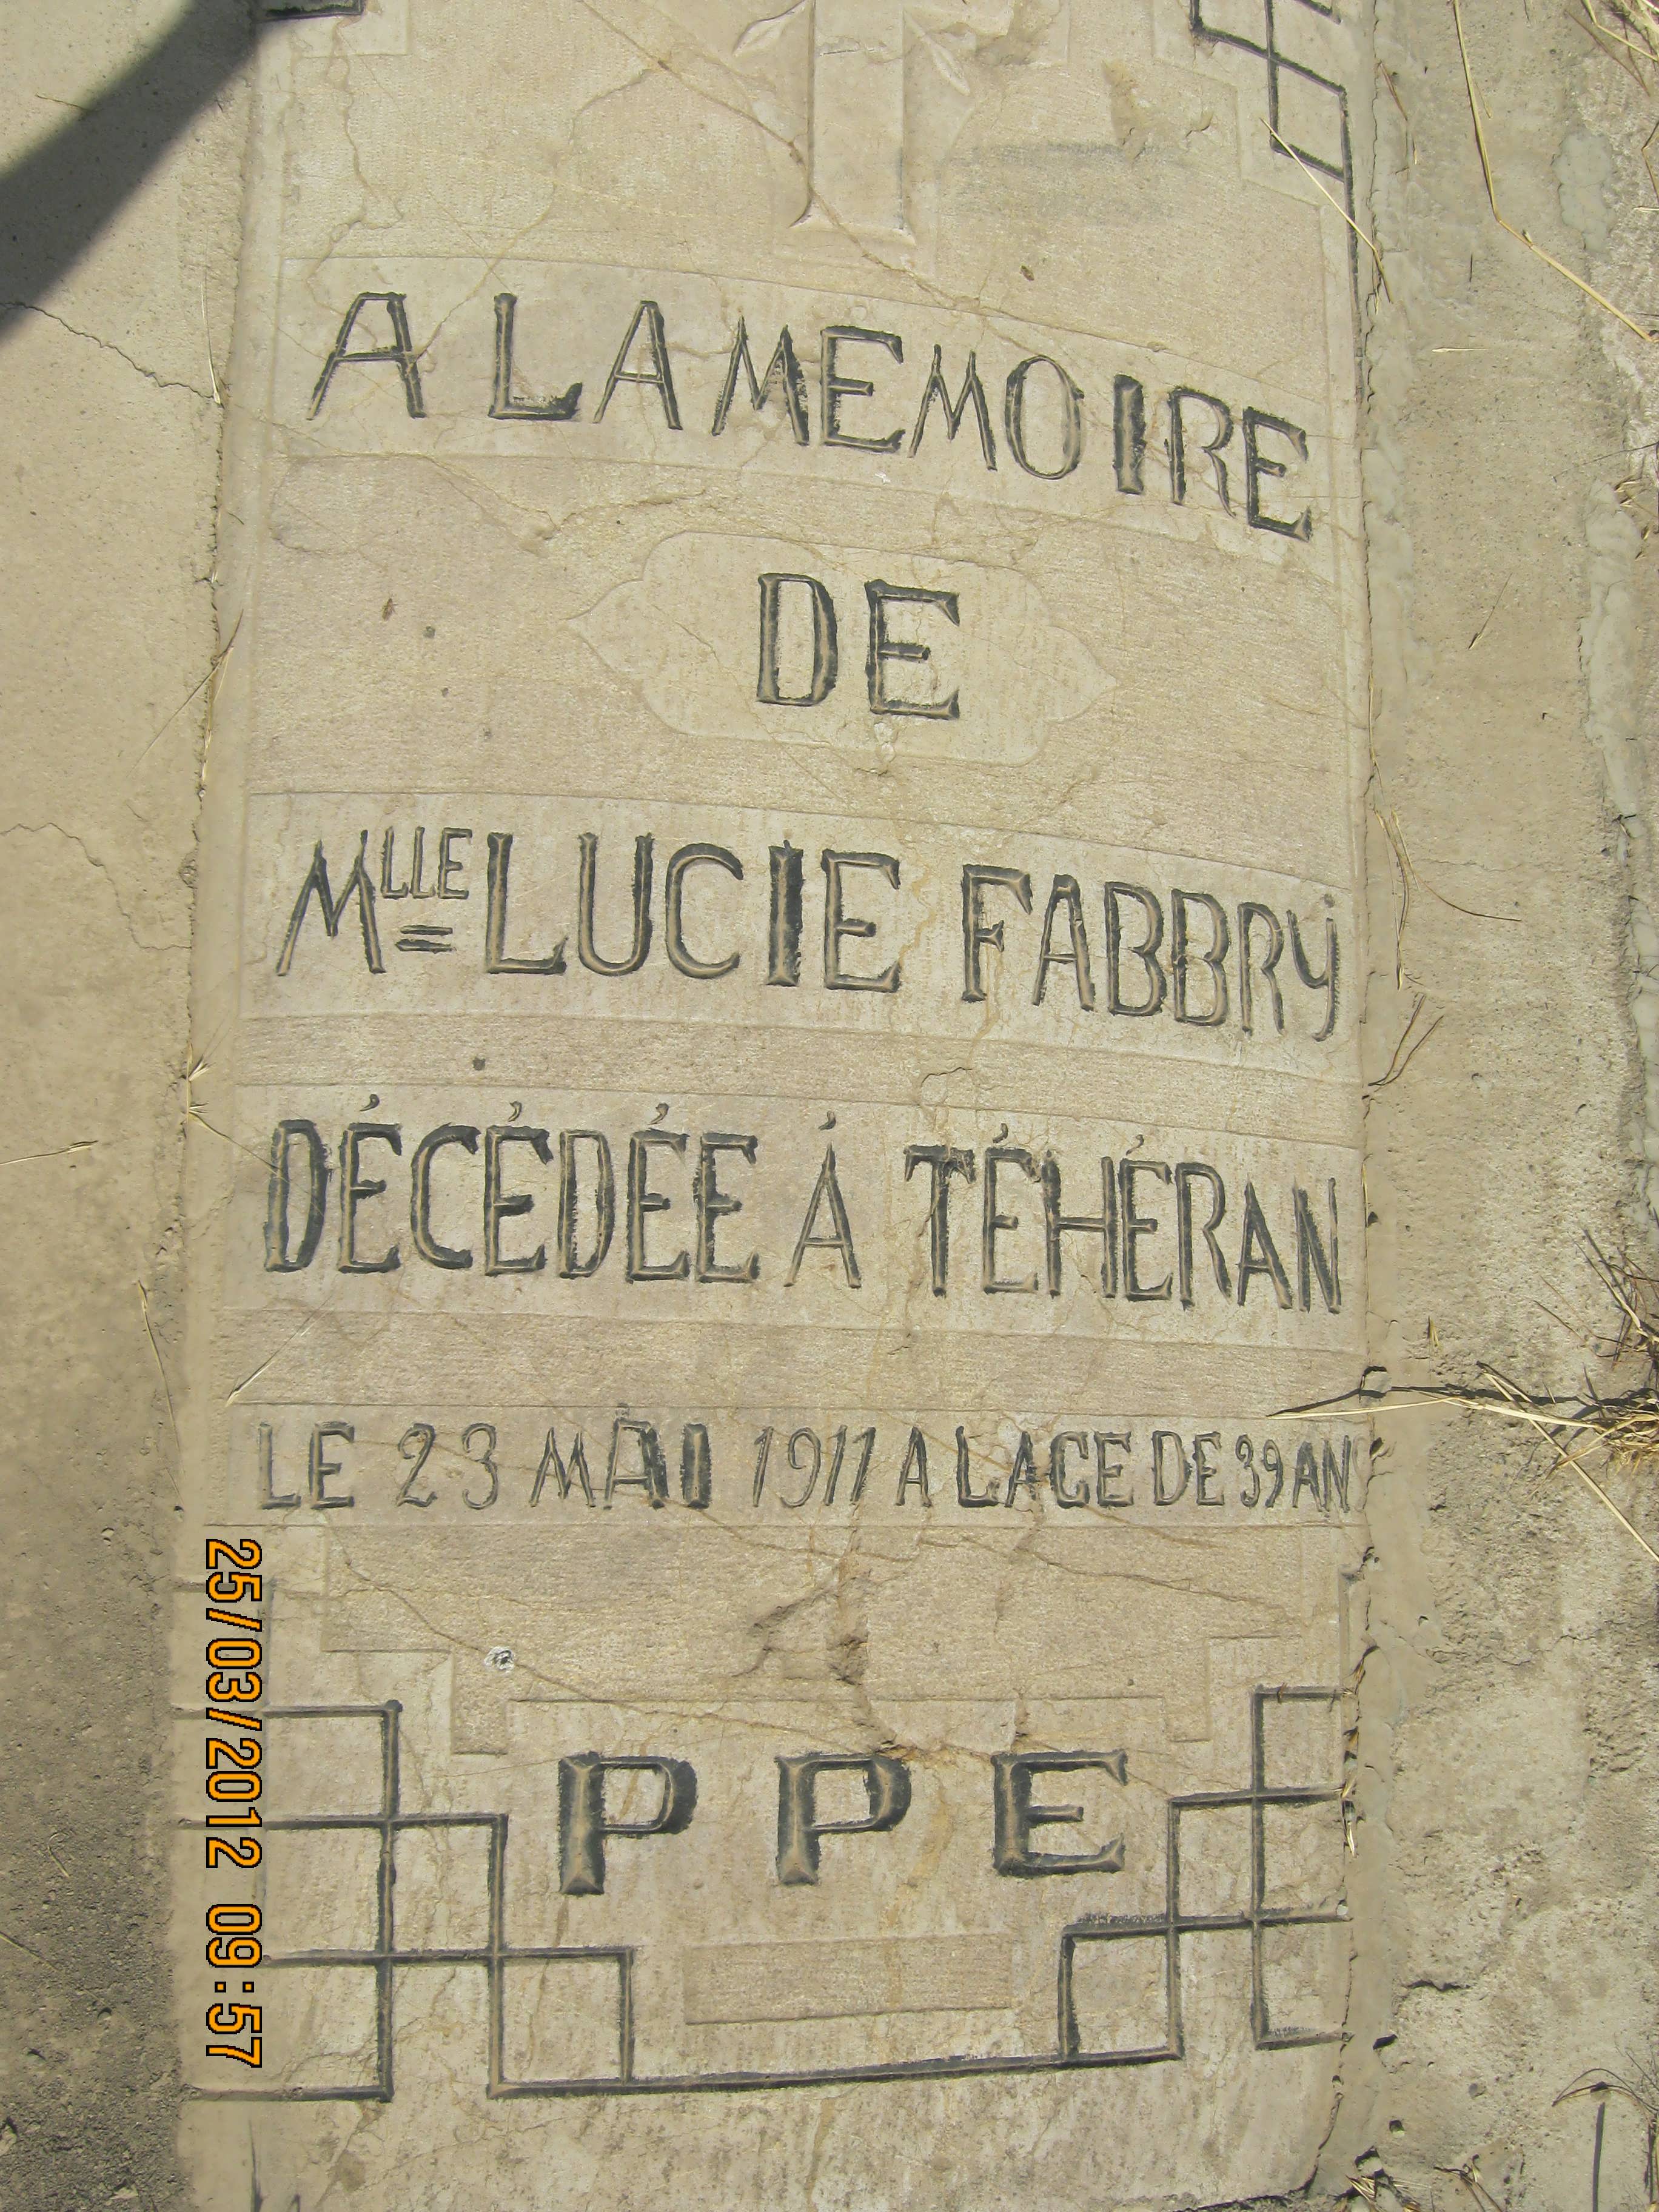 A LA MEMOIRE
DE
MLLE LUCIE FABBRY
DÉCÉDÉE Á TÉHÉRAN
LE 23 MAI 1911 A LAGE DE 39 AN
P P E
25/03/2012 09:57